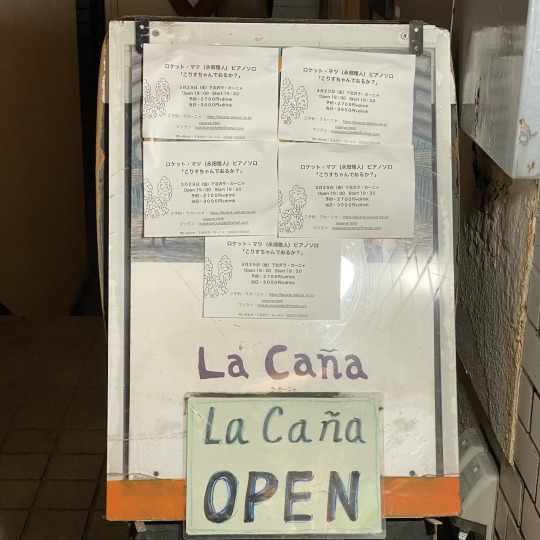 ロケット・マツ（永畑雅人）ピアノソロ
「こりすちゃんでおるか？」
3月29日（金）下北沢ラ・カーニャ
Open 19：00　Start 19：30
予約・2700円+drink
当日・3000円+drink
ご予約・ラカーニャ：https://lacana.sakura.ne.jp/
reserve.html
ロケット・マツ（永畑雅人）ピアノソロ
「こりすちゃんでおるか？」
3月29日（金）下北沢ラ・カーニャ
Open 19：00　Start 19：30
予約・2700円+drink
当日・3000円+drink
ご予約・ラカーニャ：https://lacana.sakura.ne.jp/
reserve.html
ロケット・マツ（永畑雅人）ピアノソロ
「こりすちゃんでおるか？」
3月29日（金）下北沢ラ・カーニャ
Open 19：00　Start 19：30
予約・2700円+drink
当日・3000円+drink
ご予約・ラカーニャ：https://lacana.sakura.ne.jp/
reserve.html
ロケット・マツ（永畑雅人）ピアノソロ
「こりすちゃんでおるか？」
3月29日（金）下北沢ラ・カーニャ
Open 19：00　Start 19：30
予約・2700円+drink
当日・3000円+drink
ご予約・ラカーニャ：https://lacana.sakura.ne.jp/
reserve.html
ロケット・マツ（永畑雅人）ピアノソロ
「こりすちゃんでおるか？」
3月29日（金）下北沢ラ・カーニャ
Open 19：00　Start 19：30
予約・2700円+drink
当日・3000円+drink
ご予約・ラカーニャ：https://lacana.sakura.ne.jp/
reserve.html
La Caña
ラ・カーニャ
La Caña
OPEN